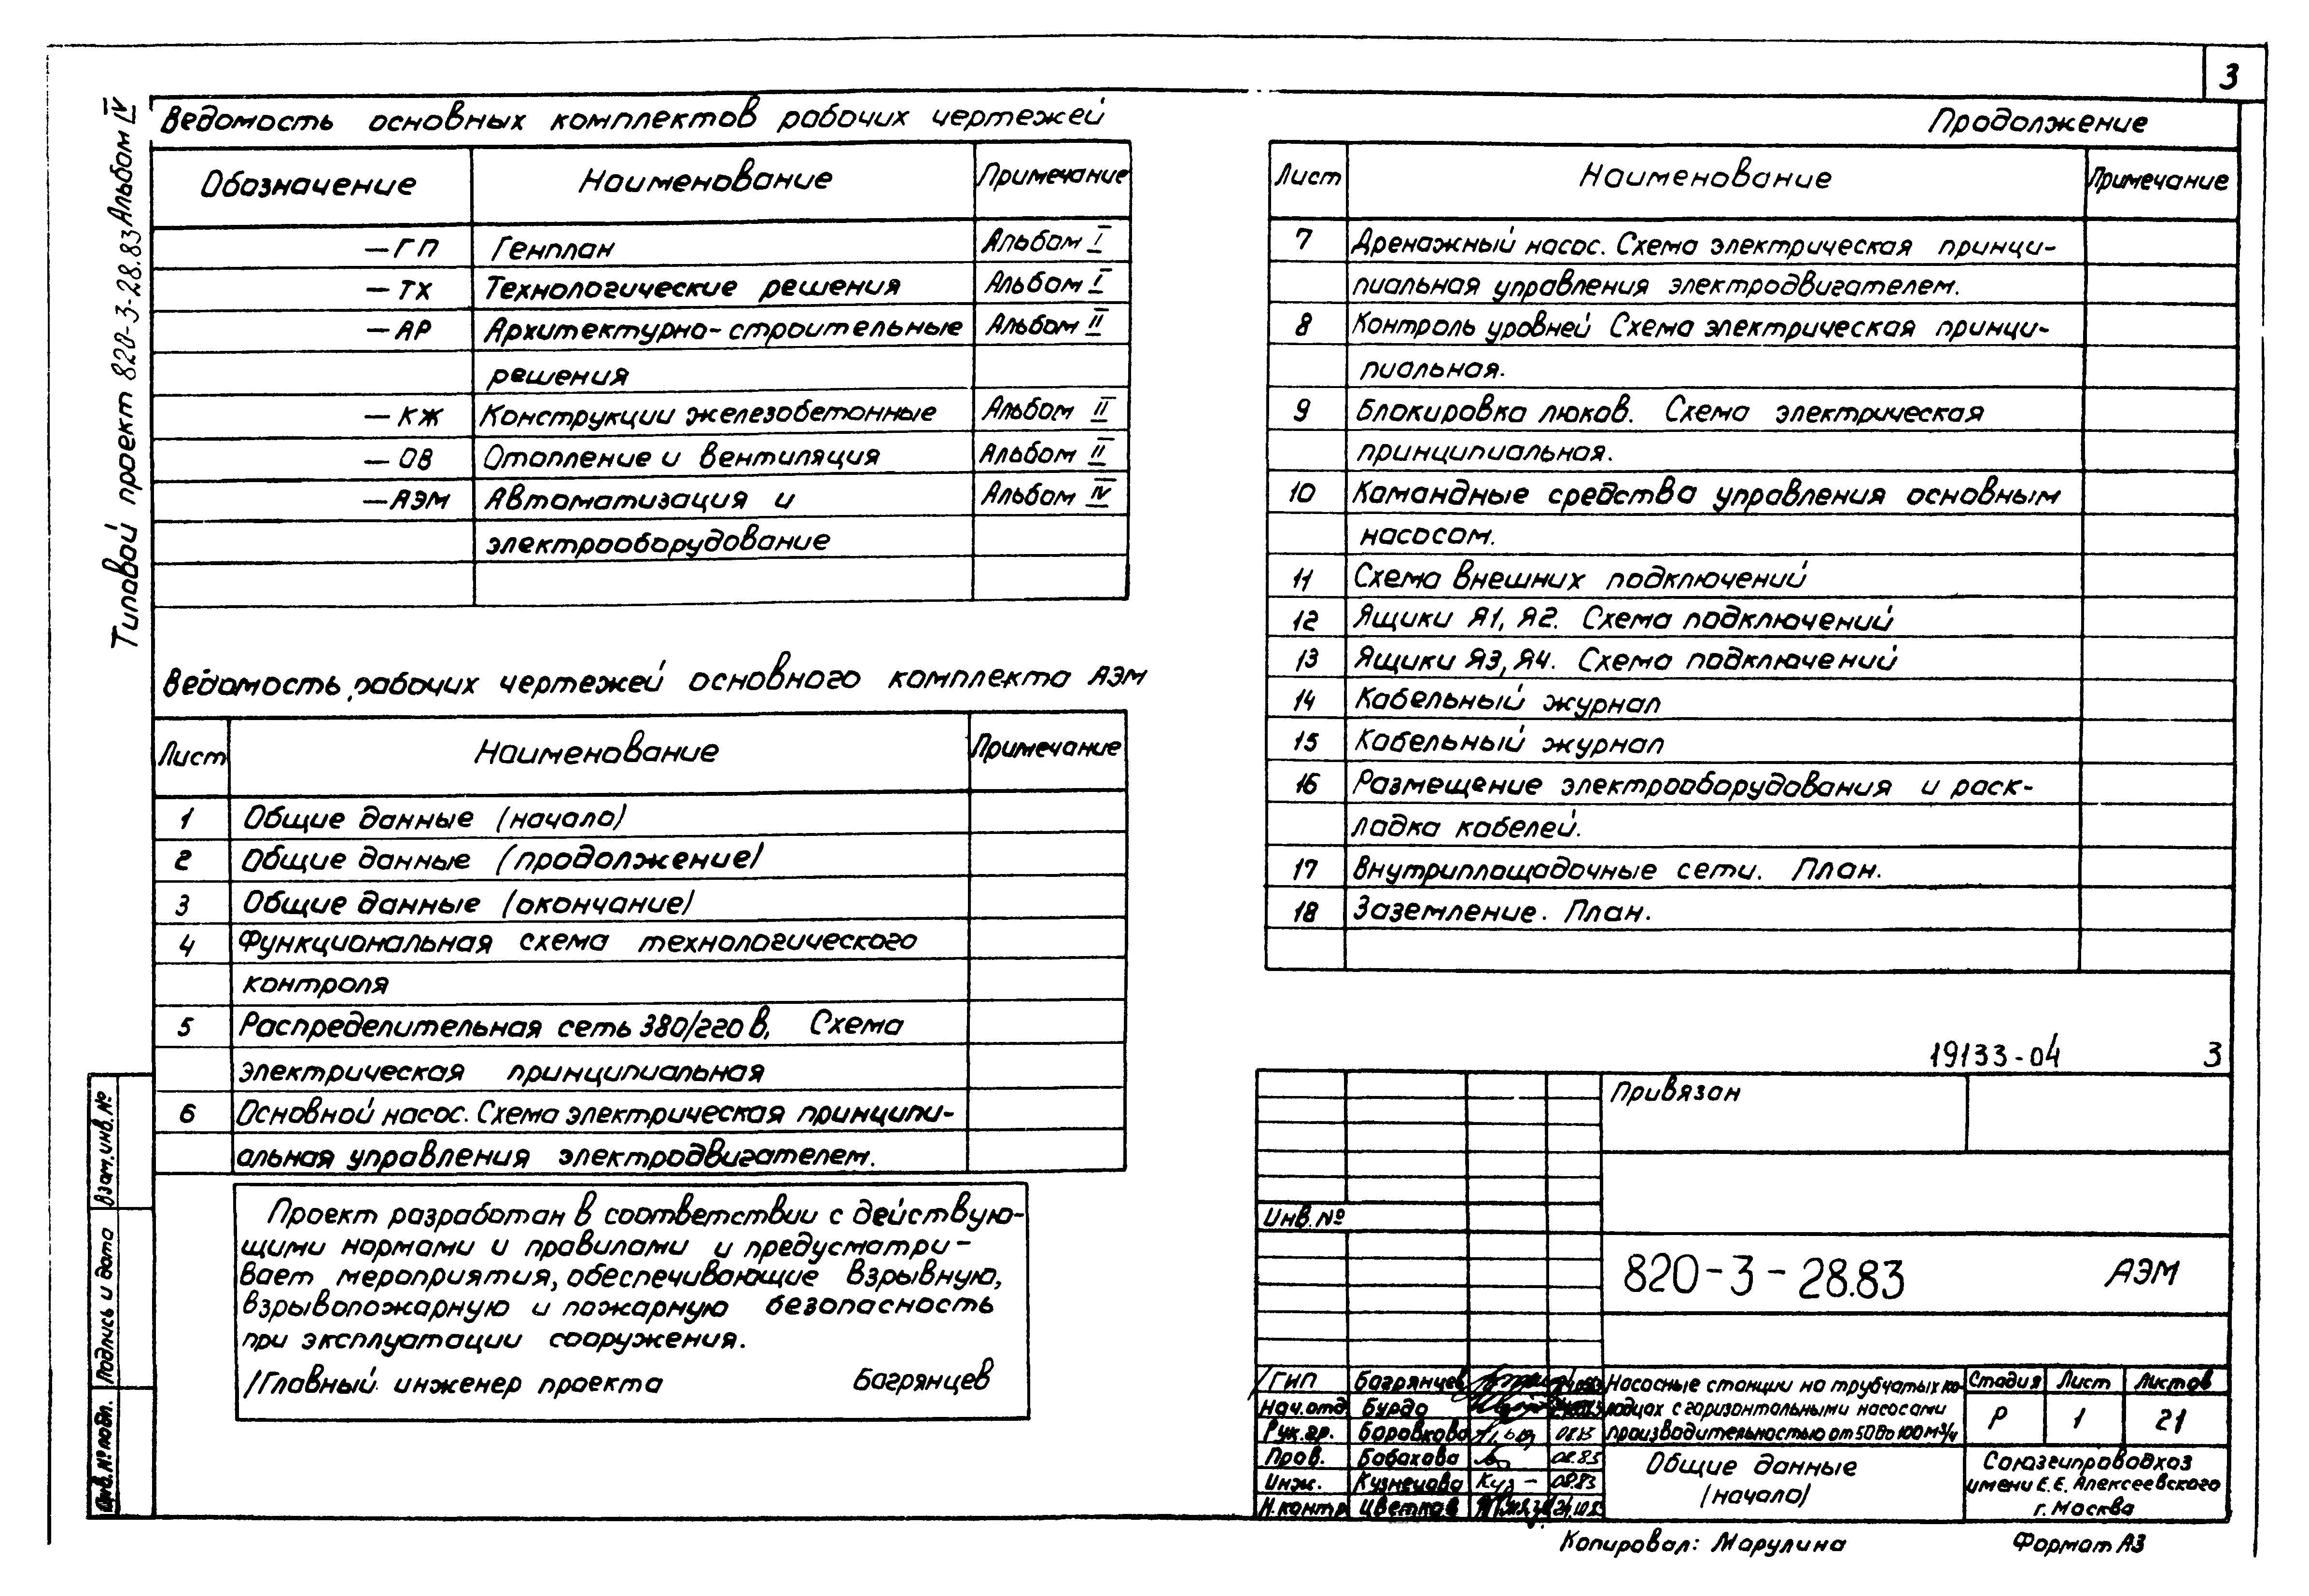 3
Типовой проект 820-3-28.83 Альбом IV
Ведомость основных комплектов рабочих чертежей
Обозначение Наименование Примечание
—ГП Генплан Альбом I
—ТХ Технологические решения Альбом I
—АР Архитектурно-строительные Альбом II
решения
—КЖ Конструкции железобетонные Альбом II
—ОВ Отопление и вентиляция Альбом II
—АЭМ Автоматизация и Альбом IV
электрооборудование
Ведомость рабочих чертежей основного комплекта АЭМ
Лист Наименование Примечание
1 Общие данные (начало)
2 Общие данные (продолжение)
3 Общие данные (окончание)
4 Функциональная схема технологического
контроля
5 Распределительная сеть 380/220 В, Схема
электрическая принципиальная
6 Основной насос. Схема электрическая принципи-
альная управления электродвигателем.
Проект разработан в соответствии с действую-
щими нормами и правилами и предусматри-
вает мероприятия, обеспечивающие взрывную,
взрывопожарную и пожарную безопасность
при эксплуатации сооружения.
/Главный инженер проекта Багрянцев
Продолжение
Лист Наименование Примечание
7 Дренажный насос. Схема электрическая принци-
пиальная управления электродвигателем.
8 Контроль уровней Схема электрическая принци-
пиальная.
9 Блокировка люков. Схема электрическая
принципиальная.
10 Командные средства управления основным
насосом.
11 Схема внешних подключений
12 Ящики Я1, Я2. Схема подключений
13 Ящики Я3, Я4. Схема подключений
14 Кабельный журнал
15 Кабельный журнал
16 Размещение электрооборудования и раск-
ладка кабелей.
17 Внутриплощадочные сети. План.
18 Заземление. План.
19133-04 3
Привязан
Инв. №
820-3-28.83 АЭМ
ГИП Багрянцев
Нач. отд. Бурда
Рук. гр. Боровкова 08.83
Пров. Бабахова 08.83
Инж. Кузнецова Куз— 08.83
Н. контр. Цветков
Насосные станции на трубчатых ко-
лодцах с горизонтальными насосами
производительностью от 50 до 100 м³/ч
Стадия Лист Листов
Р 1 21
Общие данные
(начало)
Союзгипроводхоз
имени Е.Е. Алексеевского
г. Москва
Взам. инв. №
Подпись и дата
Инв. № подл.
Копировал: Марулина Формат А3